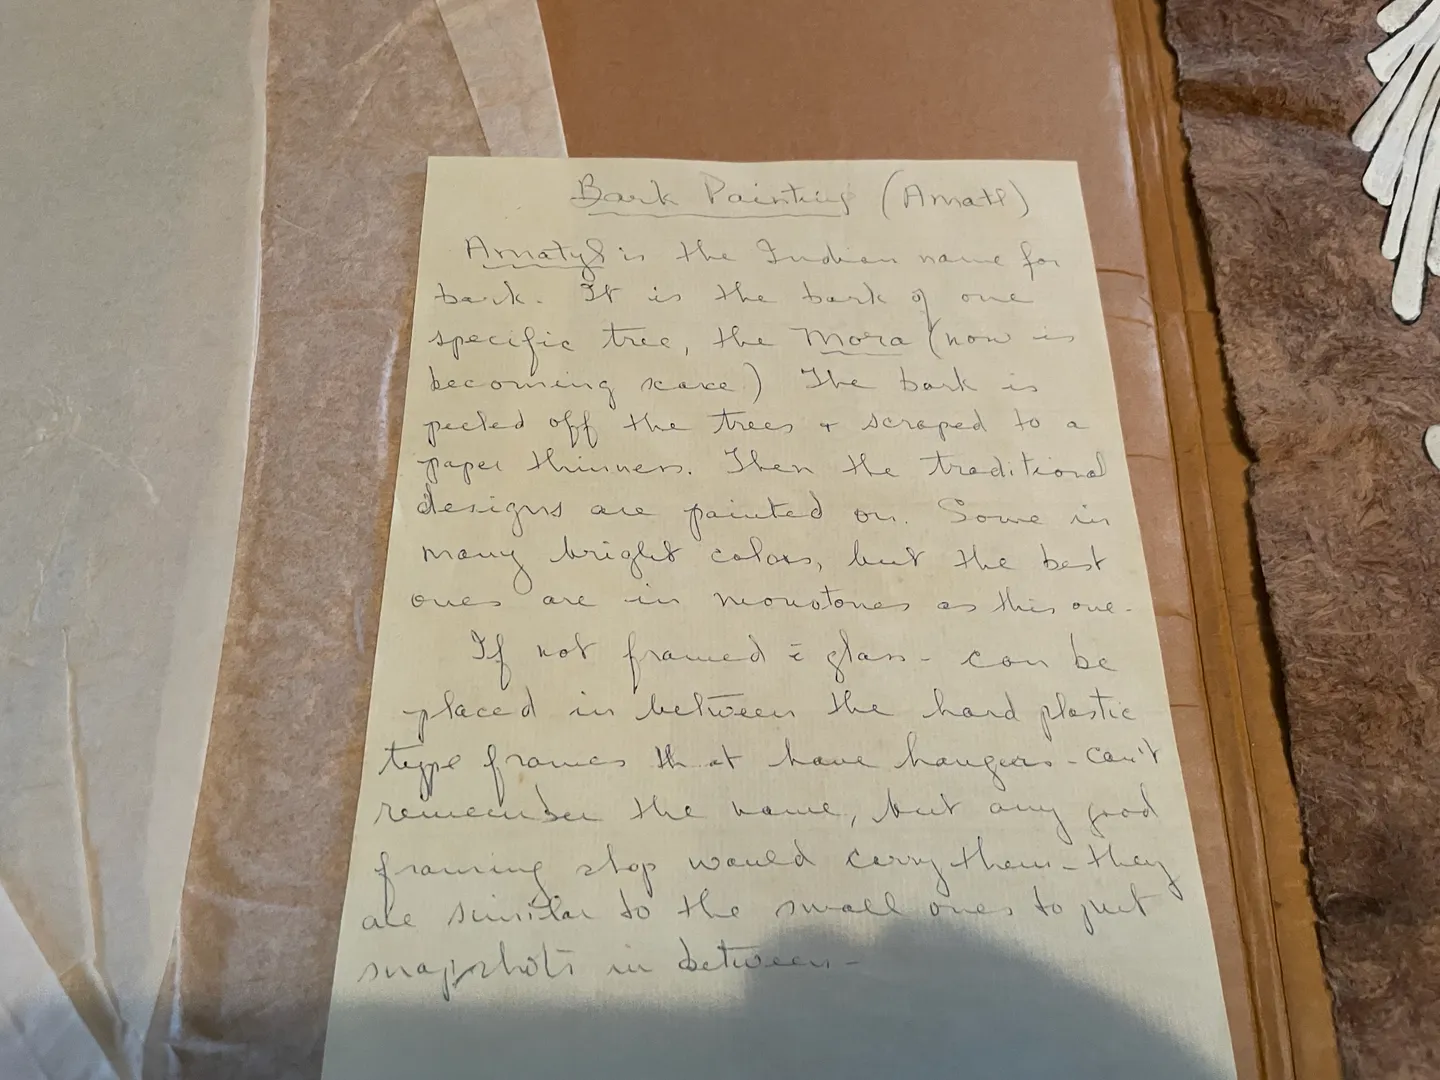 Bark Painting (Amatl)
Amatyl is the Indian name for
bark. It is the bark of one
specific tree, the Mora (now is
becoming scarce) The bark is
peeled off the trees + scraped to a
paper thinness. Then the traditional
designs are painted on. Some in
many bright colors, but the best
ones are in monotones as this one.
If not framed c̄ glass - can be
placed in between the hard plastic
type frames that have hangers - can't
remember the name, but any good
framing shop would carry them - they
are similar to the small ones to put
snapshots in between -